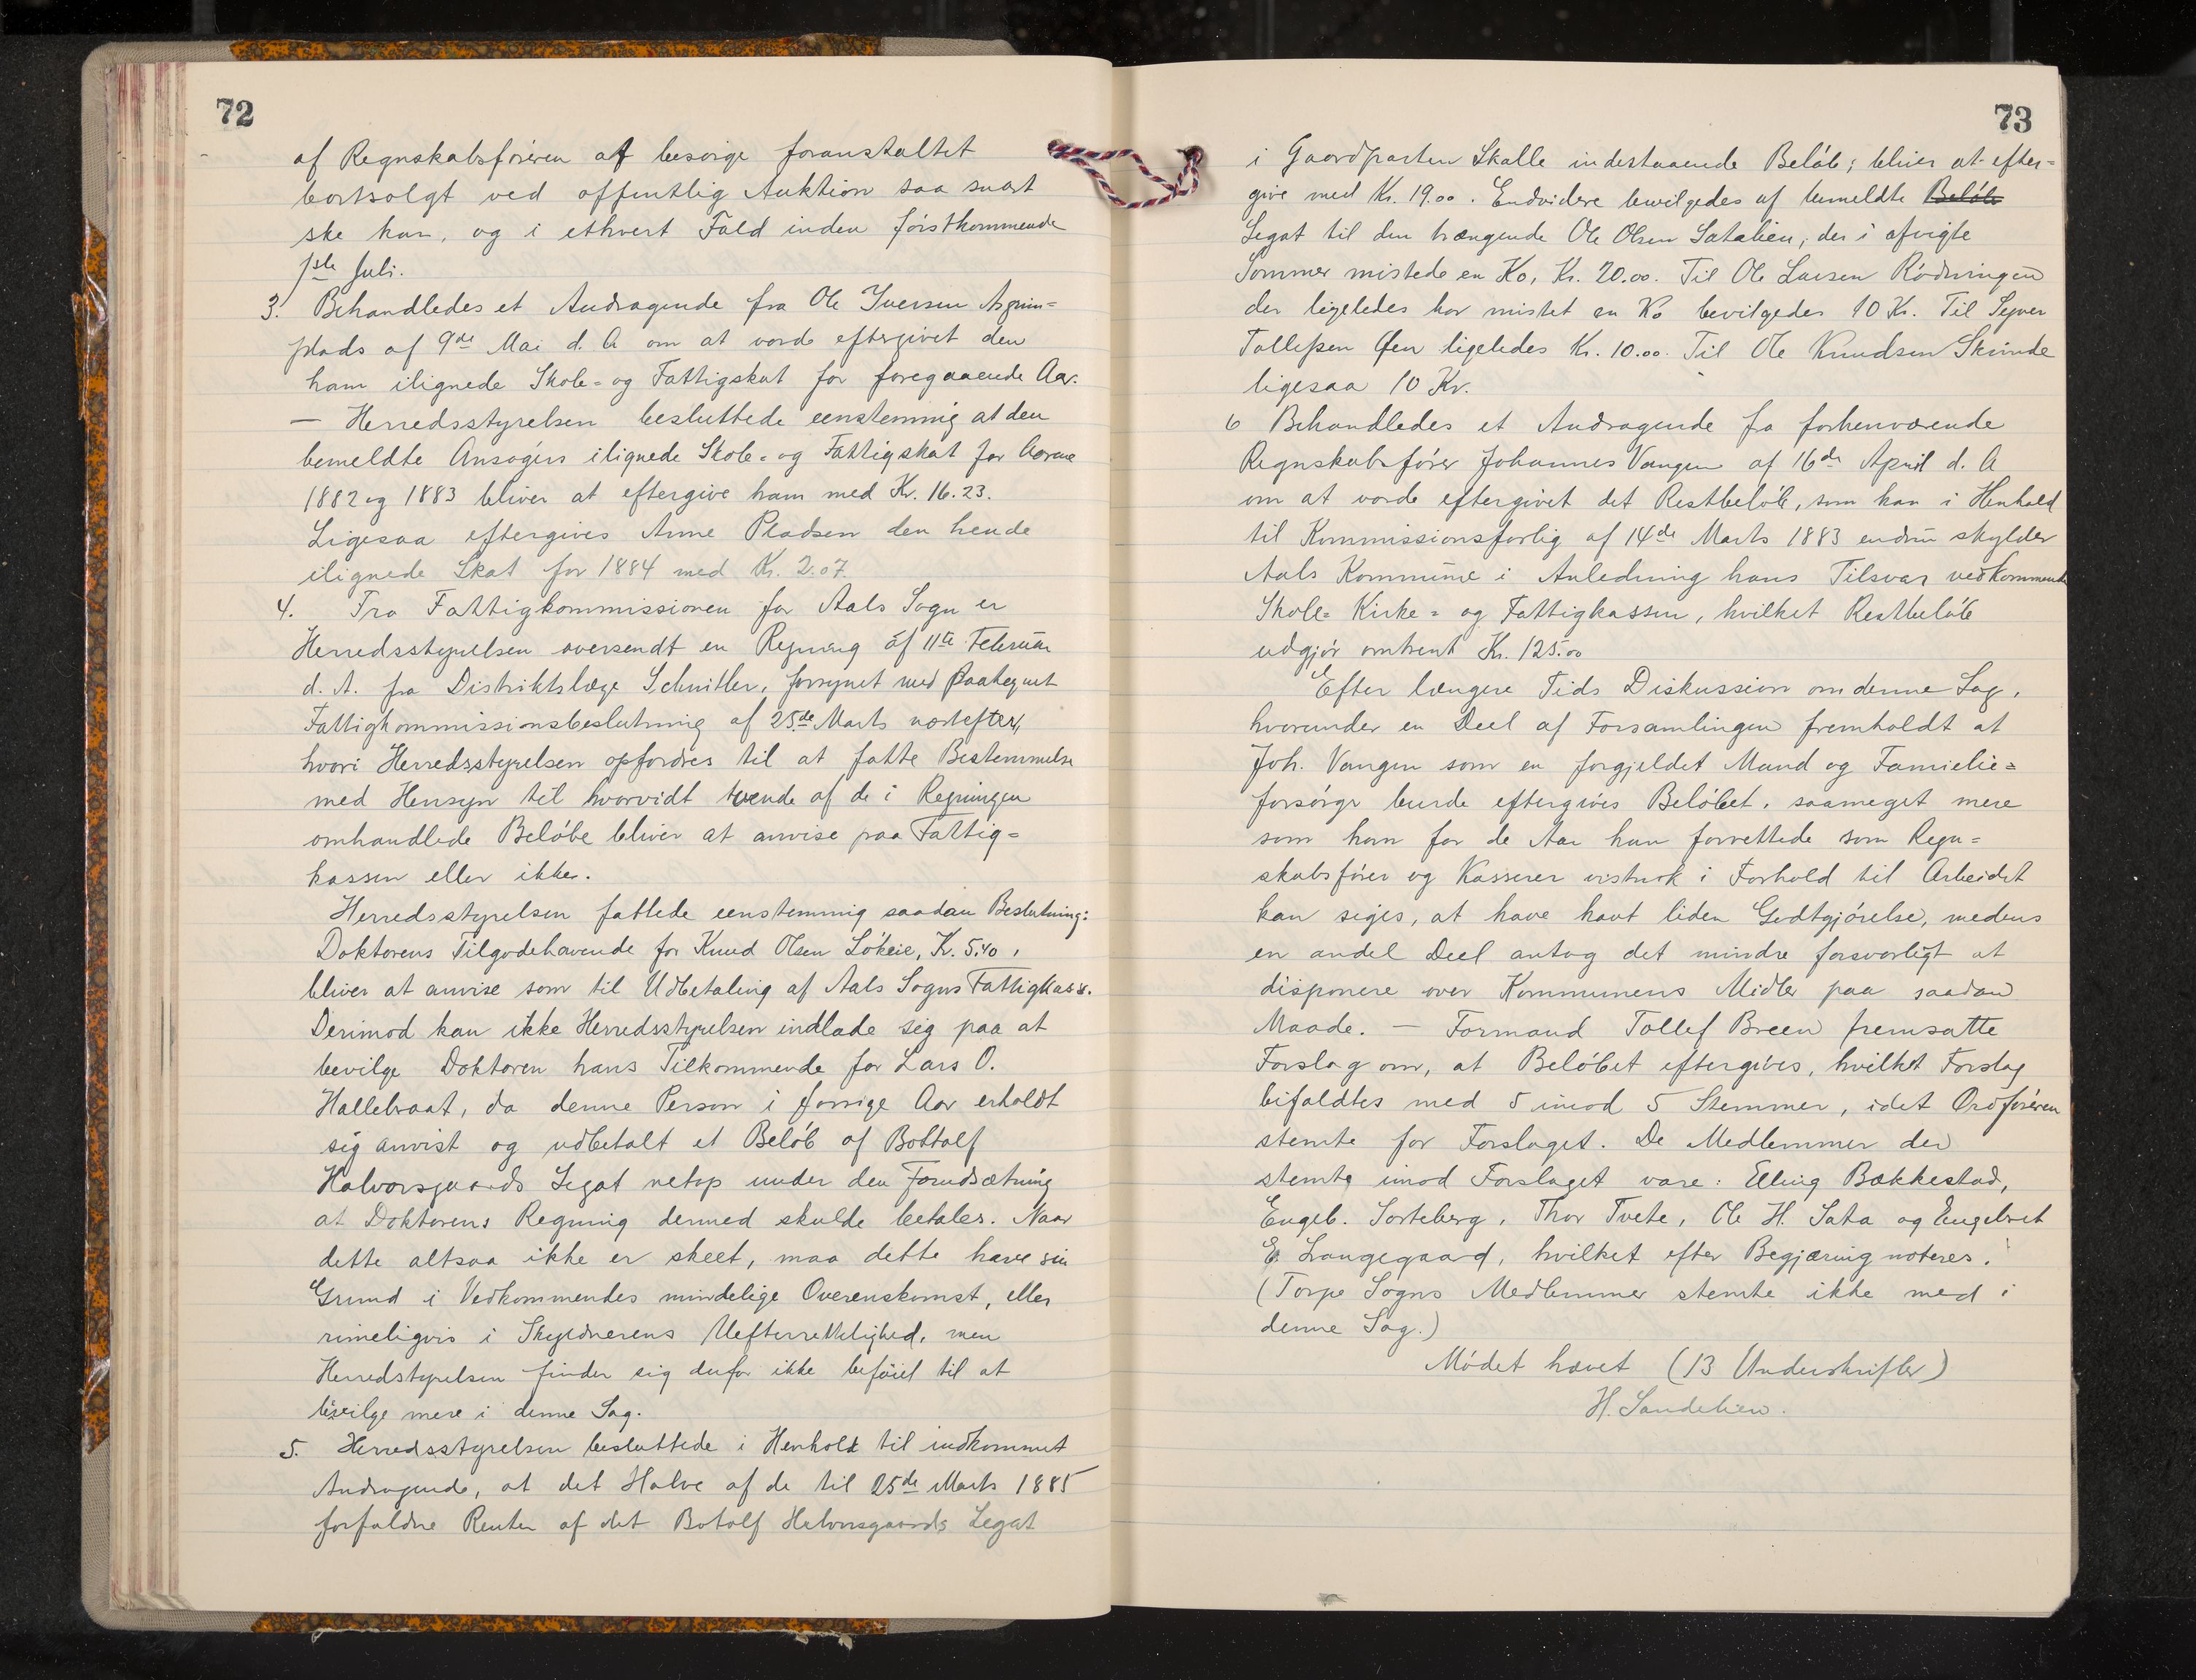 72
af Regnskabsføreren at besørge foranstaltet
bortsolgt ved offentlig Auktion saa snart
ske kan, og i ethvert Fald inden førstkommende
1ste Juli.
3. Behandledes et Andragende fra Ole Iversen
plads af 9de Mai d. A om at vorde eftergivet den
ham ilignede Skole= og Fattigskat for foregaaende Aar.
— Herredsstyrelsen besluttede eenstemmig at den
bemeldte Ansøgers ilignede Skole= og Fattigskat for Aarene
1882 og 1883 bliver at eftergive ham med Kr. 16.23.
Ligesaa eftergives Anne Pladsen den hende
ilignede Skat for 1884 med Kr. 2.07.
4. Fra Fattigkommissionen for Aals Sogn er
Herredsstyrelsen oversendt en Regning af 11te Februar
d. A. fra Distriktslæge Schnitler, forsynet med paategnet
Fattigkommissionsbeslutning af 25de Marts næstefter,
hvori Herredsstyrelsen opfordres til at fatte Bestemmelse
med Hensyn til hvorvidt tvende af de i Regningen
omhandlede Beløbe bliver at anvise paa Fattig=
kassen eller ikke.
Herredsstyrelsen fattede eenstemmig saadan Beslutning:
Doktorens Tilgodehavende for Knud Olsen Løkeie, Kr. 5.40,
bliver at anvise som til Udbetaling af Aals Sogns Fattigkasse.
Derimod kan ikke Herredsstyrelsen indlade sig paa at
bevilge Doktoren hans Tilkommende for Lars O.
Hallebraat, da denne Person i forrige Aar erholdt
sig anvist og udbetalt et Beløb af Bottolf
Halvorsgaards Legat netop under den Forudsætning
at Doktorens Regning dermed skulde betales. Naar
dette altsaa ikke er skeet, maa dette have sin
Grund i Vedkommendes mindelige Overenskomst, eller
rimeligvis i Skyldnerens Uefterrettelighed, men
Herredstyrelsen finder sig derfor ikke beføiet til at
bevilge mere i denne Sag.
5. Herredsstyrelsen besluttede i Henhold til indkommet
Andragende, at det Halve af de til 25de Marts 1885
forfaldne Renter af det Botolf Halvorsgaards Legat
73
i Gaardparten Skalle indestaaende Beløb; bliver at efter=
give med Kr. 19.00. Endvidere bevilgedes af bemeldte Beløb
Legat til den trængende Ole Olsen Satalien, der i afvigte
Sommer mistede en Ko, Kr. 20.00. Til Ole Larsen Rødningen
der ligeledes har mistet en Ko bevilgedes 10 Kr. Til Syver
Tollefsen Øen ligeledes Kr. 10.00. Til Ole Knudsen Skrinde
ligesaa 10 Kr.
6 Behandledes et Andragende fra forhenværende
Regnskabsfører Johannes Vangen af 16de April d. A
om at vorde eftergivet det Restbeløb, som han i Henhold
til Kommissionsforlig af 14de Marts 1883 endnu skylder
Aals Kommune i Anledning hans Tilsvar vedkommende
Skole= Kirke= og Fattigkassen, hvilket Restbeløb
udgjør omtrent Kr. 125.00
Efter længere Tids Diskussion om denne Sag,
hvorunder en Deel af Forsamlingen fremholdt at
Joh. Vangen som en forgjeldet Mand og Famielie=
forsørger burde eftergives Beløbet, saameget mere
som han for de Aar han forrettede som Regn=
skabsfører og Kasserer vistnok i Forhold til Arbeidet
kan siges, at have havt liden Godtgjørelse, medens
en andel Deel antog det mindre forsvarligt at
disponere over Kommunens Midler paa saadan
Maade. — Formand Tollef Breen fremsatte
Forslag om, at Beløbet eftergives, hvilket Forslag
bifaldtes med 5 imod 5 Stemmer, idet Ordføreren
stemte for Forslaget. De Medlemmer der
stemte imod Forslaget vare: Elling Bækkestad,
Engeb. Sorteberg, Thor Tvete, Ole H. Sata og Engebret
E. Langegaard, hvilket efter Begjæring noteres.
(Torpe Sogns Medlemmer stemte ikke med i
denne Sag.)
Mødet hævet (13 Underskrifter)
H. Sandelien.